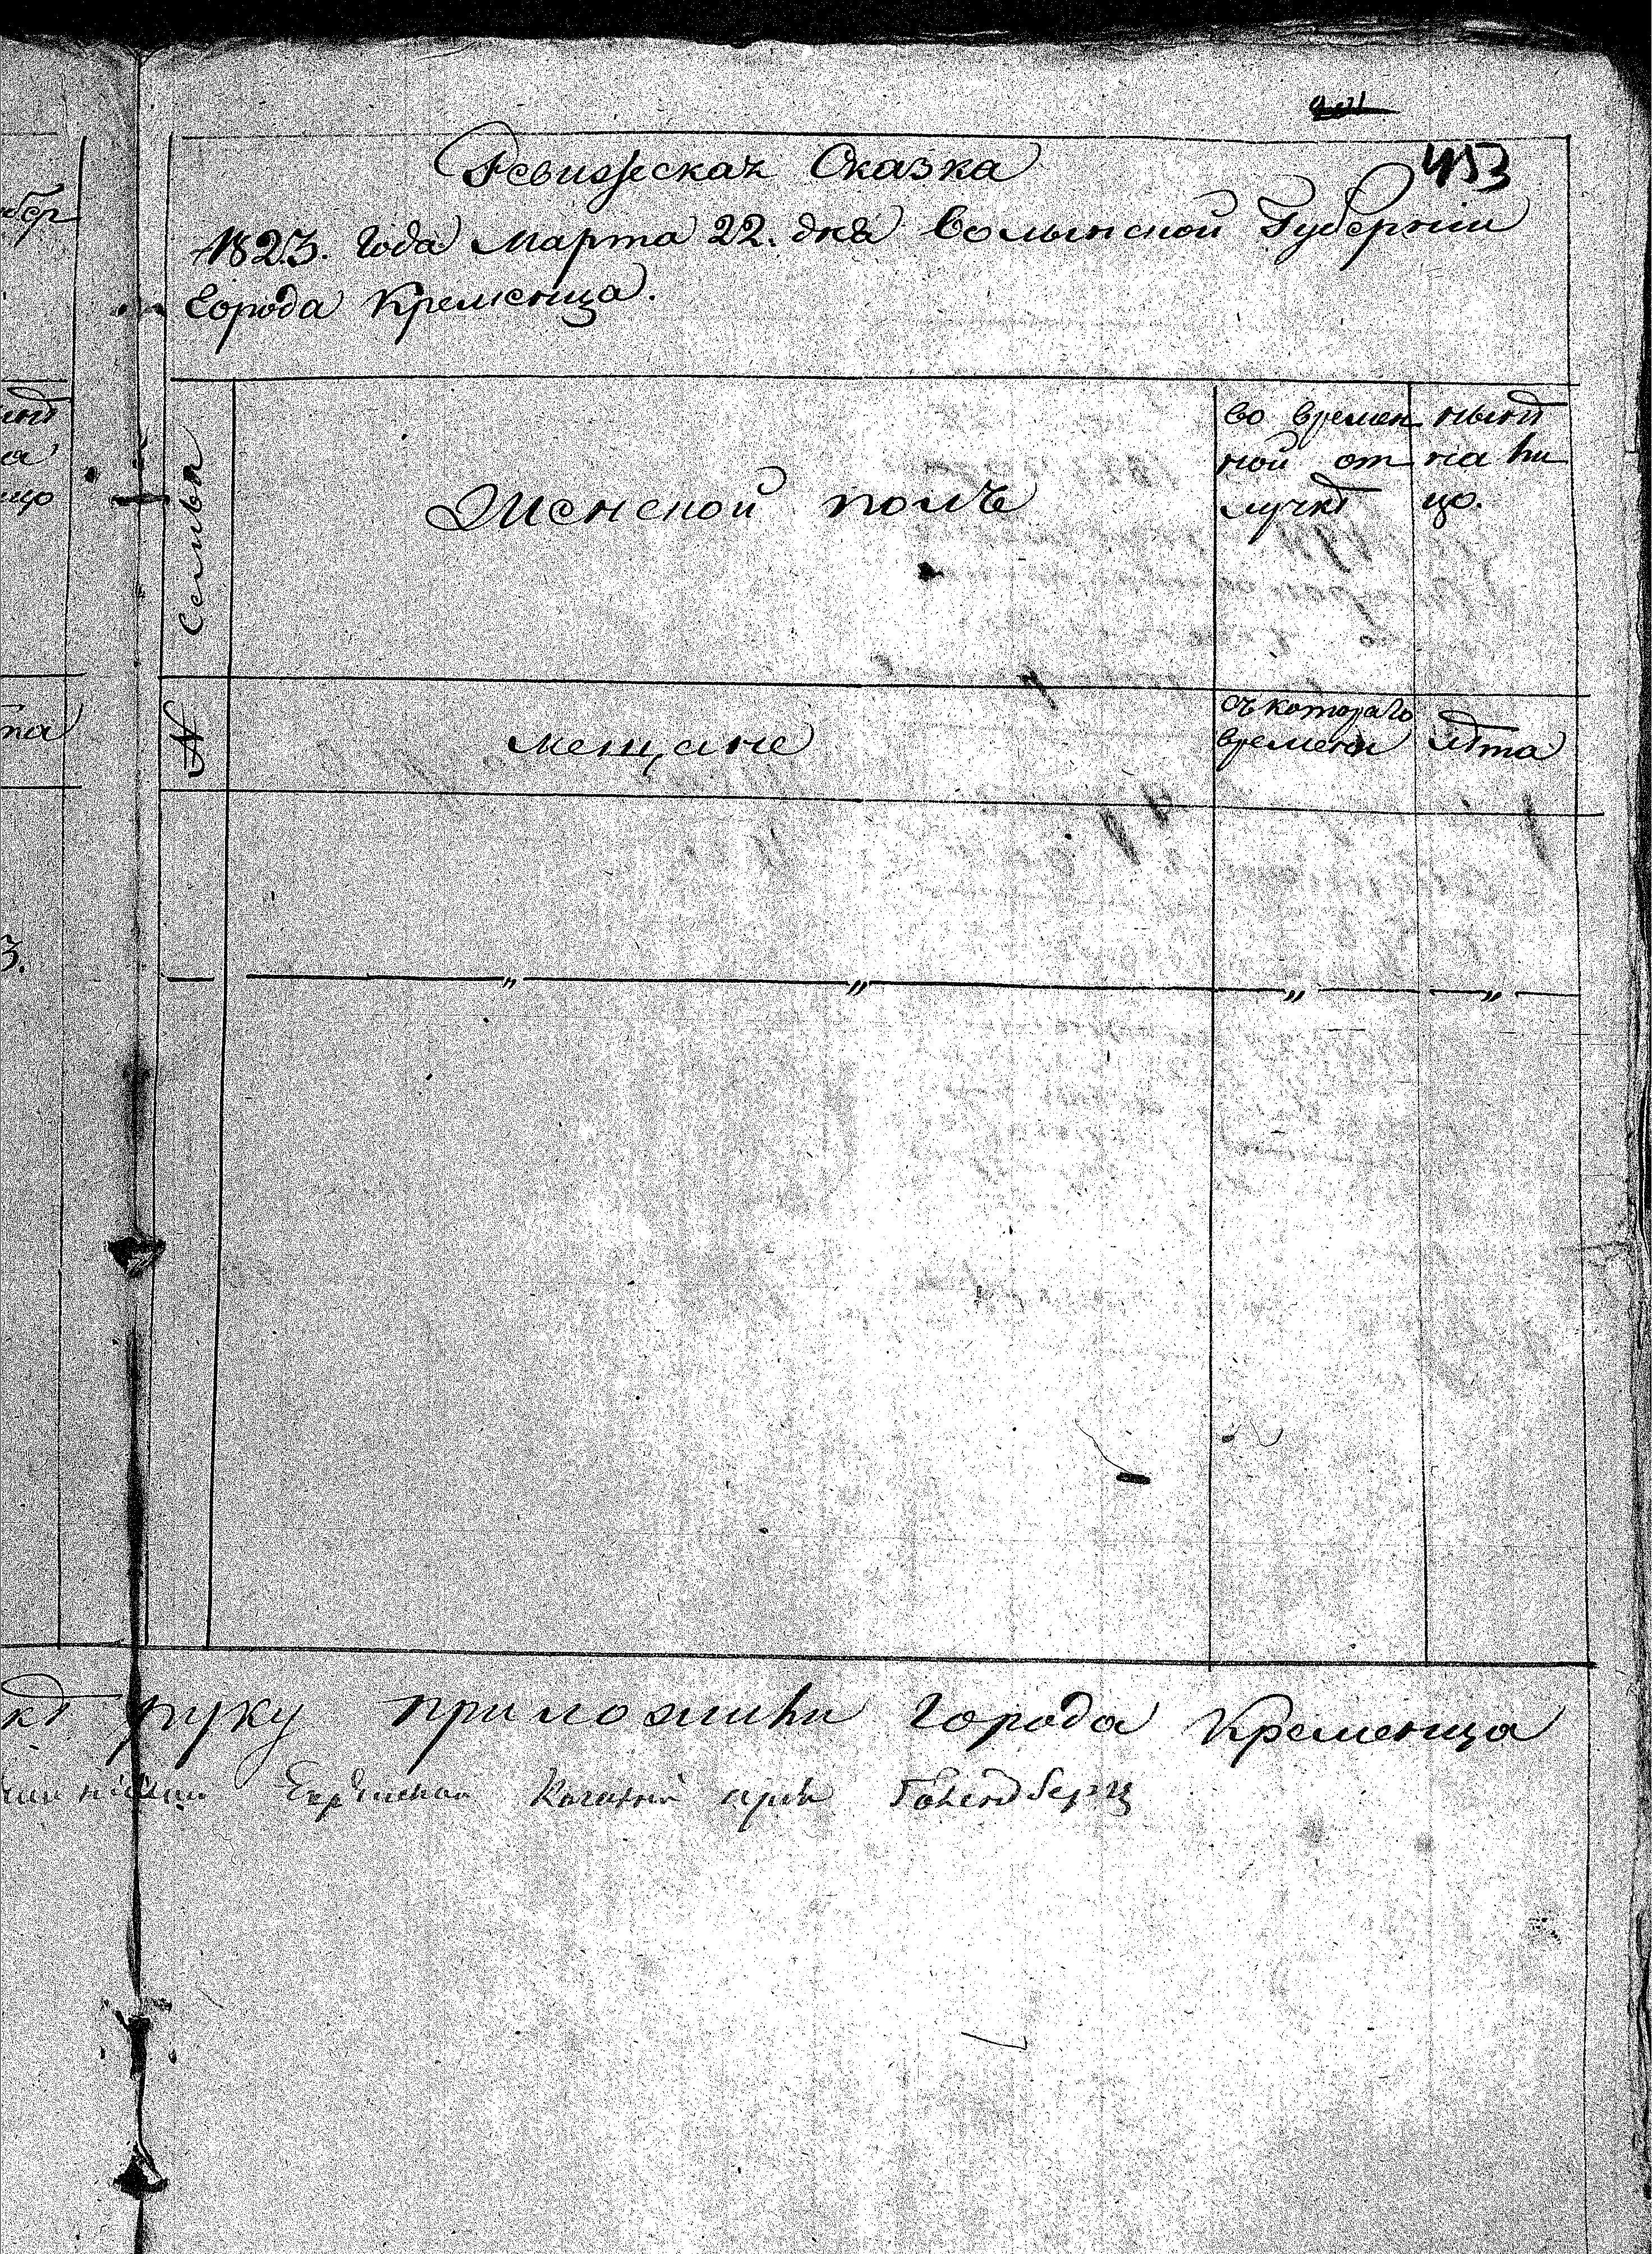 453
Ревижская Сказка
1823. года Марта 22. дня Волынской Губернии
Города Кременца.
Семья
Женской полъ
во времен
ной от
лучкѣ
нынѣ
на ли
цо.
№
мещане
съ котораго
времени
лѣта
" " " "
3.
руку приложили города Кременца
Еврейской Кагал